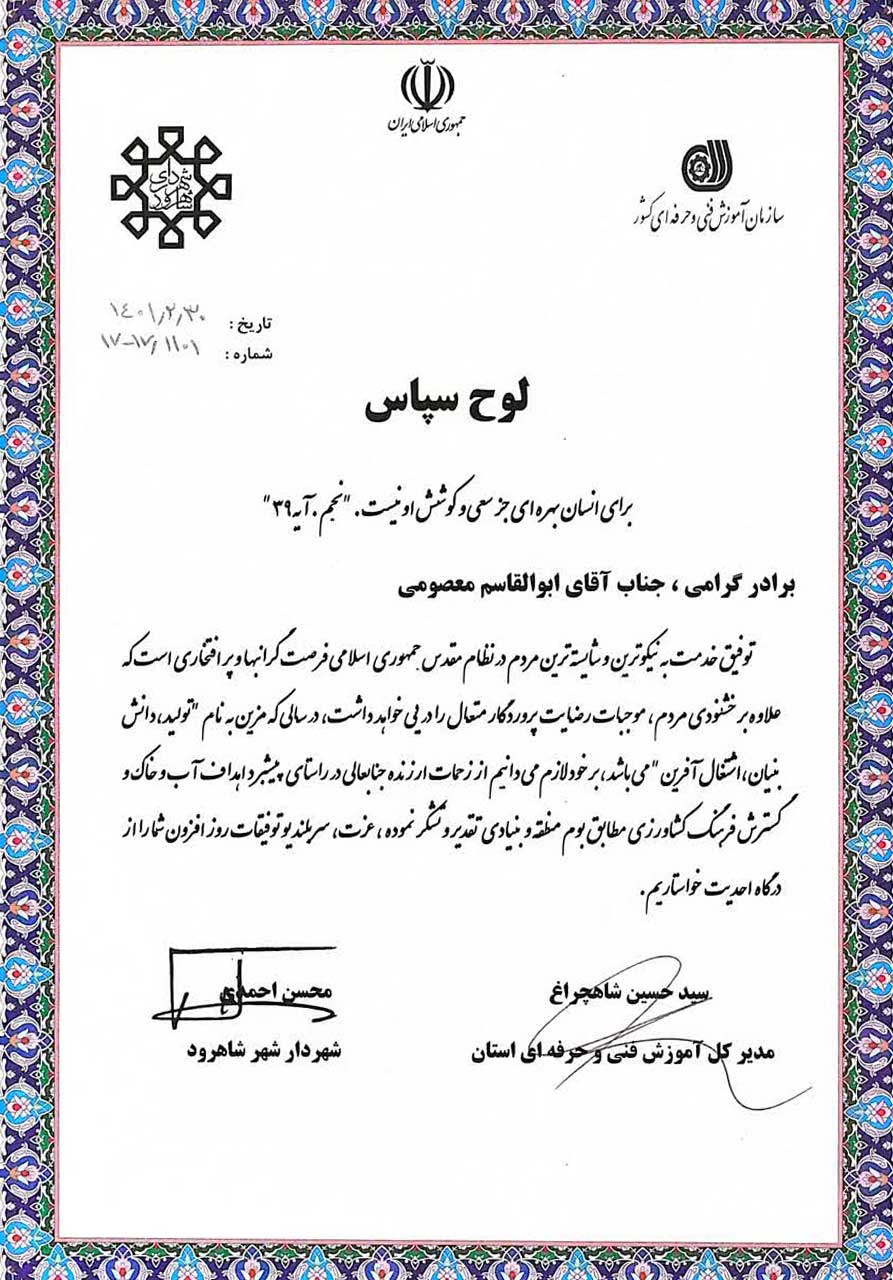 جمهوری اسلامی ایران
شهرداری شاهرود
سازمان آموزش فنی و حرفه ای کشور
تاریخ : ۱۴۰۱/۲/۳۰
شماره : ۱۷-۱۷/۱۱۰۱
لوح سپاس
برای انسان بهره ای جز سعی و کوشش او نیست. "نجم. آیه ۳۹"
برادر گرامی ، جناب آقای ابوالقاسم معصومی
توفیق خدمت به نیکوترین و شایسته ترین مردم در نظام مقدس جمهوری اسلامی فرصت گرانبها و پر افتخاری است که
علاوه بر خشنودی مردم ، موجبات رضایت پروردگار متعال را در پی خواهد داشت، در سالی که مزین به نام "تولید، دانش
بنیان، اشتغال آفرین" می باشد، بر خود لازم می دانیم از زحمات ارزنده جنابعالی در راستای پیشبرد اهداف آب و خاک و
گسترش فرهنگ کشاورزی مطابق بوم منطقه و بنیادی تقدیر و تشکر نموده ، عزت، سربلندیو توفیقات روز افزون شما را از
درگاه احدیت خواستاریم.
سید حسین شاهچراغ
مدیر کل آموزش فنی و حرفه ای استان
محسن احمدی
شهردار شهر شاهرود